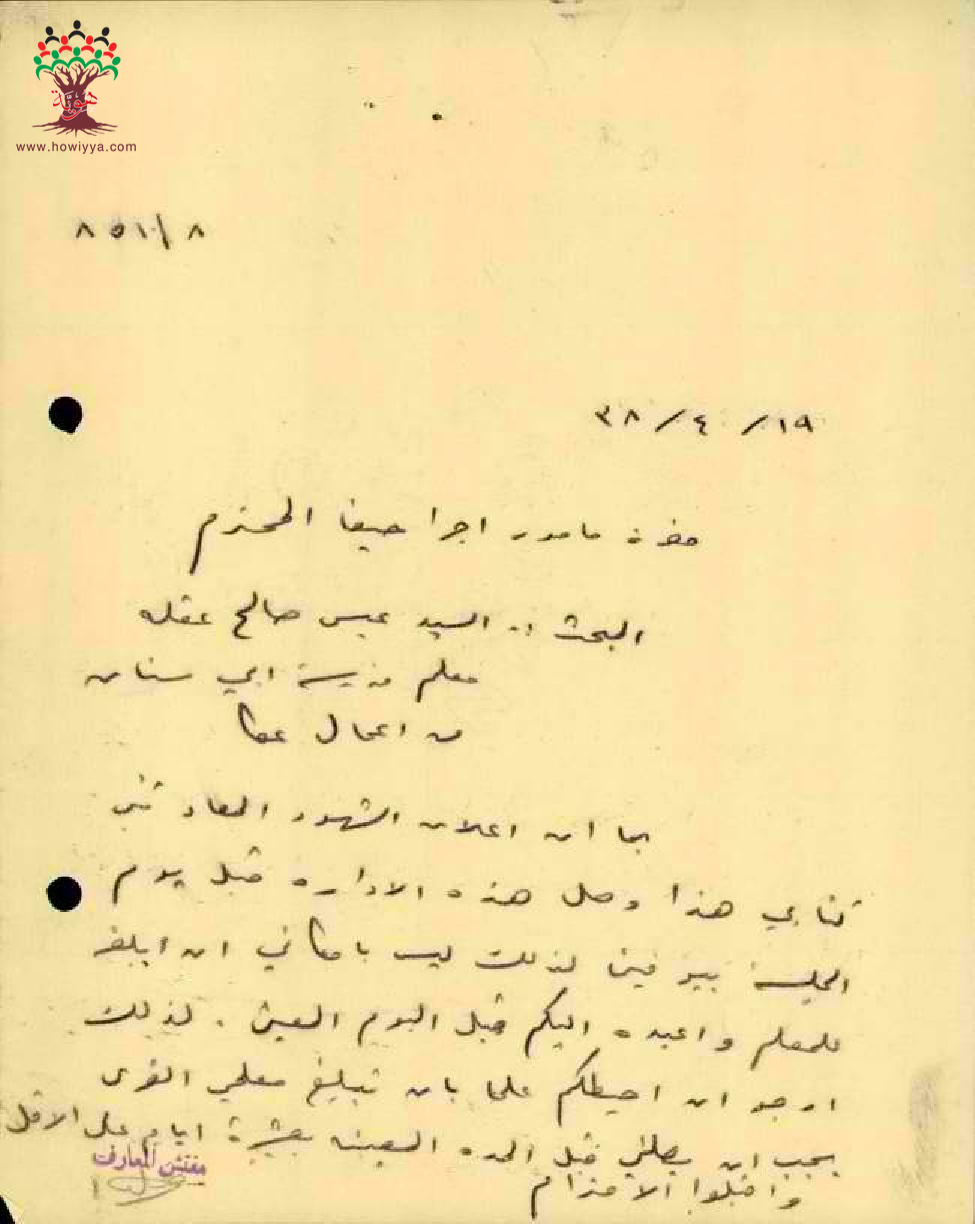 هوية
www.howiyya.com
٨٥١/٨
١٩/٤/٣٨
حضرة مامور اجرا حيفا المحترم
البحث :. السيد عيس صالح عقله
معلم مدرسة ابي سنان
من اعمال عكا
بما ان اعلان الشهود المعاد ضمن
كتابي هذا وصل هذه الاداره قبل يوم
الجلسة بيومين لذلك ليس بامكاني ان ابلغه
للمعلم واعيده اليكم قبل اليوم المعين . لذلك
ارجو ان احيطكم علما بان تبليغ معلمي القرى
يجب ان يصلني قبل المده المعينه بعشرة ايام على الاقل
واقبلوا الاحترام
مفتش المعارف